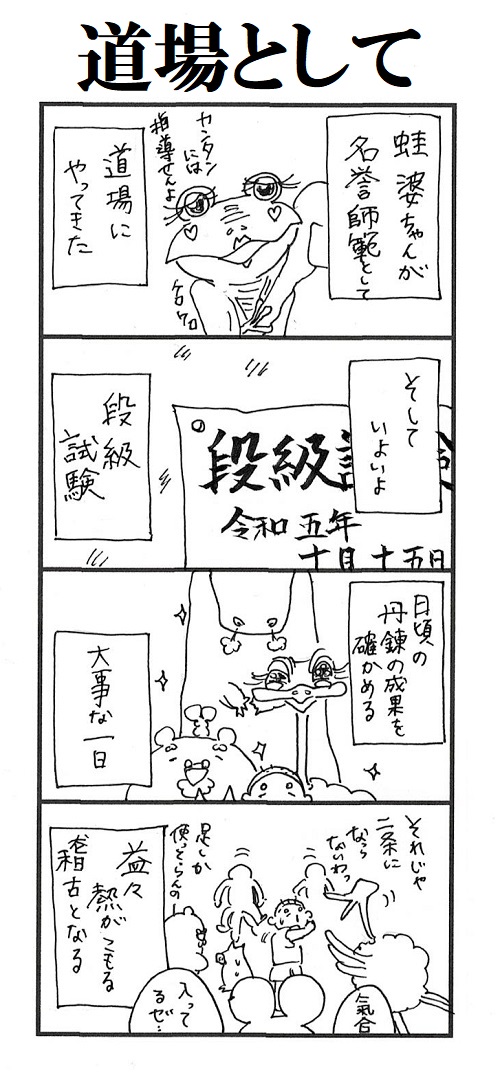 道場として
蛙婆ちゃんが
名誉師範として
カンタン
には
指導せんよ
道場に
やってきた
ケロ
ケロ
そして
いよいよ
段級試験
令和五年
十月十五日
段級
試験
日頃の
丹錬の成果を
確かめる
大事な一日
それじゃ
二条に
なら
ないわっ
足しか
使っとらんの
益々
熱がこもる
稽古となる
入って
るぜ…
氣合